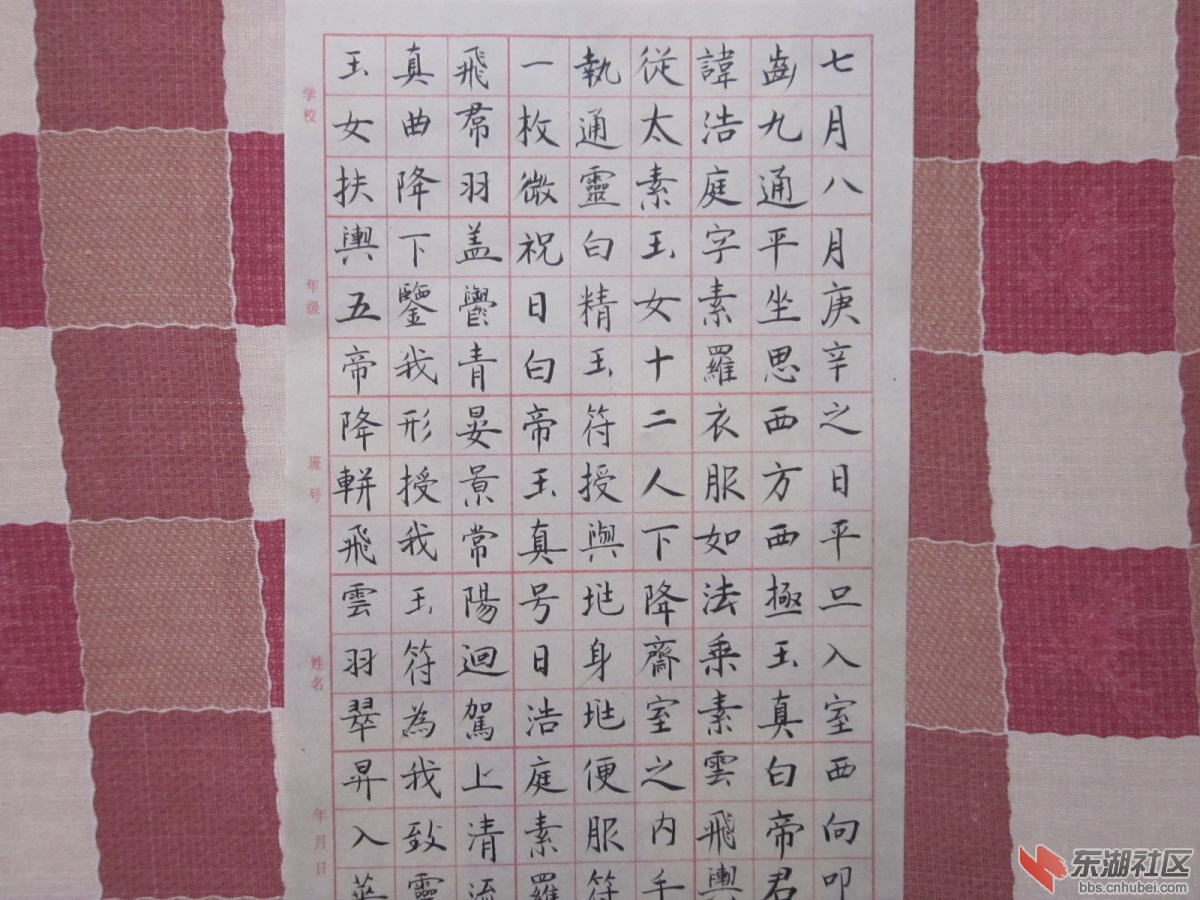 七月八月庚辛之日平旦入室西向叩
齒九通平坐思西方西極玉真白帝君
諱浩庭字素羅衣服如法乘素雲飛輿
從太素玉女十二人下降齋室之内手
執通靈白精玉符授與垗身垗便服符
一枚微祝曰白帝玉真号曰浩庭素羅
飛帬羽盖鬱青晏景常陽迴駕上清流
真曲降下鑒我形授我玉符為我致靈
玉女扶輿五帝降軿飛雲羽翠昇入華
学校
年级
班号
姓名
年月日
东湖社区
bbs.cnhubei.com